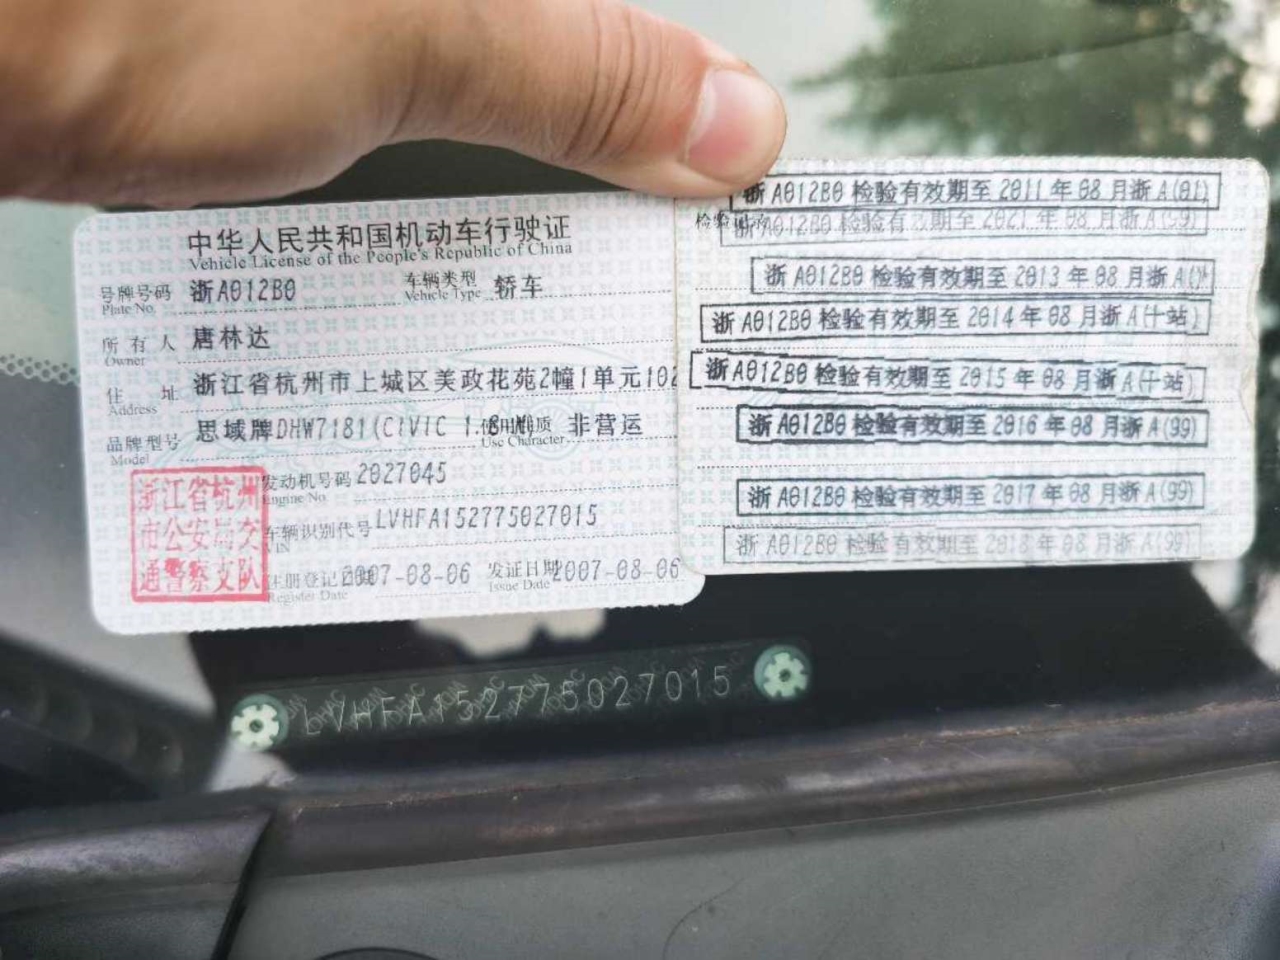 中华人民共和国机动车行驶证
Vehicle License of the People's Republic of China
号牌号码 浙A012B0 车辆类型 轿车
Plate No. Vehicle Type
所有人 唐林达
Owner
住址 浙江省杭州市上城区美政花苑2幢1单元102
Address
品牌型号 思域牌DHW7181(CIVIC 1.8 使用性质 非营运
Model Use Character
发动机号码 2027045
Engine No.
车辆识别代号 LVHFA152775027015
VIN
注册登记日期 2007-08-06 发证日期 2007-08-06
Register Date Issue Date
浙江省杭州
市公安局交
通警察支队
浙A012B0检验有效期至2011年08月浙A(01)
浙A012B0检验有效期至2021年08月浙A(99)
浙A012B0检验有效期至2013年08月浙A
浙A012B0检验有效期至2014年08月浙A(十站)
浙A012B0检验有效期至2015年08月浙A(十站)
浙A012B0检验有效期至2016年08月浙A(99)
浙A012B0检验有效期至2017年08月浙A(99)
浙A012B0检验有效期至2018年08月浙A(99)
LVHFA152775027015